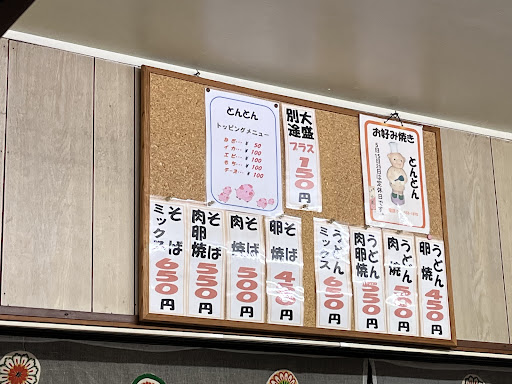 とんとん
トッピングメニュー
ねぎ… ¥ 50
イカ… ¥ 100
エビ… ¥ 100
もち… ¥ 100
チーズ… ¥ 100
大盛
別途
プラス
150円
お好み焼き
とんとん
そば
ミックス
650円
そば
肉卵焼
550円
そば
肉焼
500円
そば
卵焼
450円
うどん
ミックス
650円
うどん
肉卵焼
550円
うどん
肉焼
500円
うどん
卵焼
450円